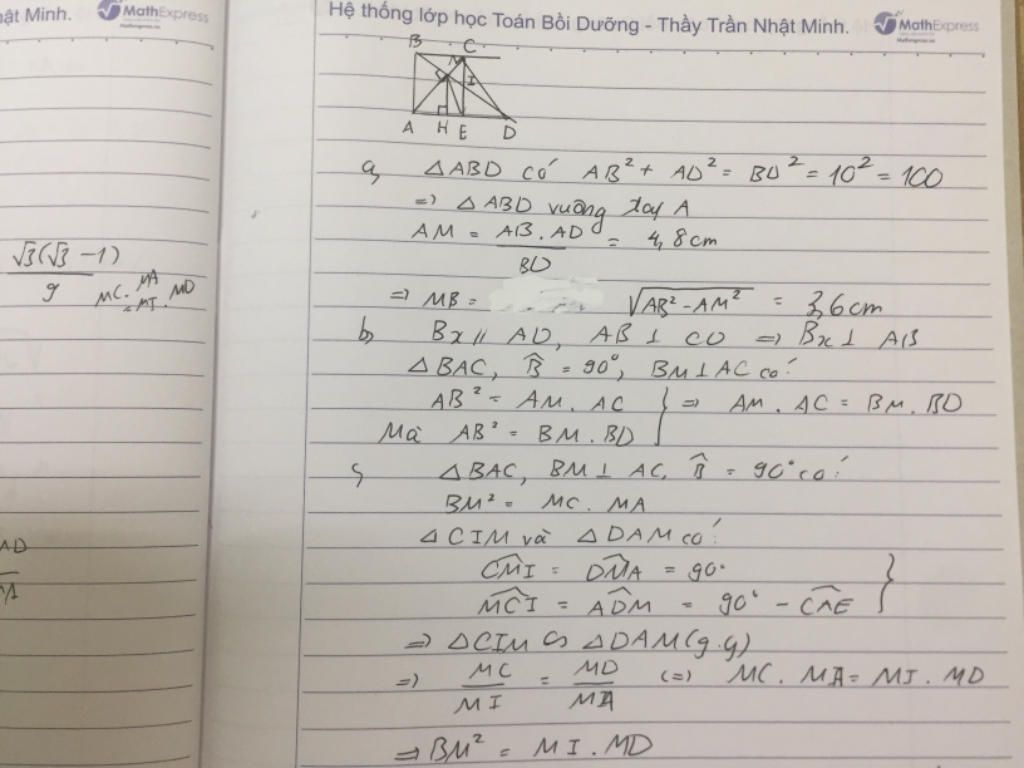 ật Minh.
MathExpress
Hệ thống lớp học Toán Bồi Dưỡng - Thầy Trần Nhật Minh.
MathExpress
B C
M
I
A H E D
a, △ABD có AB² + AD² = BD² = 10² = 100
=> △ABD vuông tại A
AM = AB . AD / BD = 4,8cm
=> MB = √(AB² - AM²) = 3,6cm
b, Bx // AD, AB ⊥ CD => Bx ⊥ AB
△BAC, B̂ = 90°, BM ⊥ AC có:
AB² = AM . AC
Mà AB² = BM . BD } => AM . AC = BM . BD
c, △BAC, BM ⊥ AC, B̂ = 90° có:
BM² = MC . MA
△CIM và △DAM có:
CMI = DMA = 90°
MCI = ADM = 90° - CAE }
=> △CIM ∽ △DAM (g.g)
=> MC / MI = MD / MA <=> MC . MA = MI . MD
=> BM² = MI . MD
√3(√3 - 1) / 9
MC. MA
= MI . MD
AD